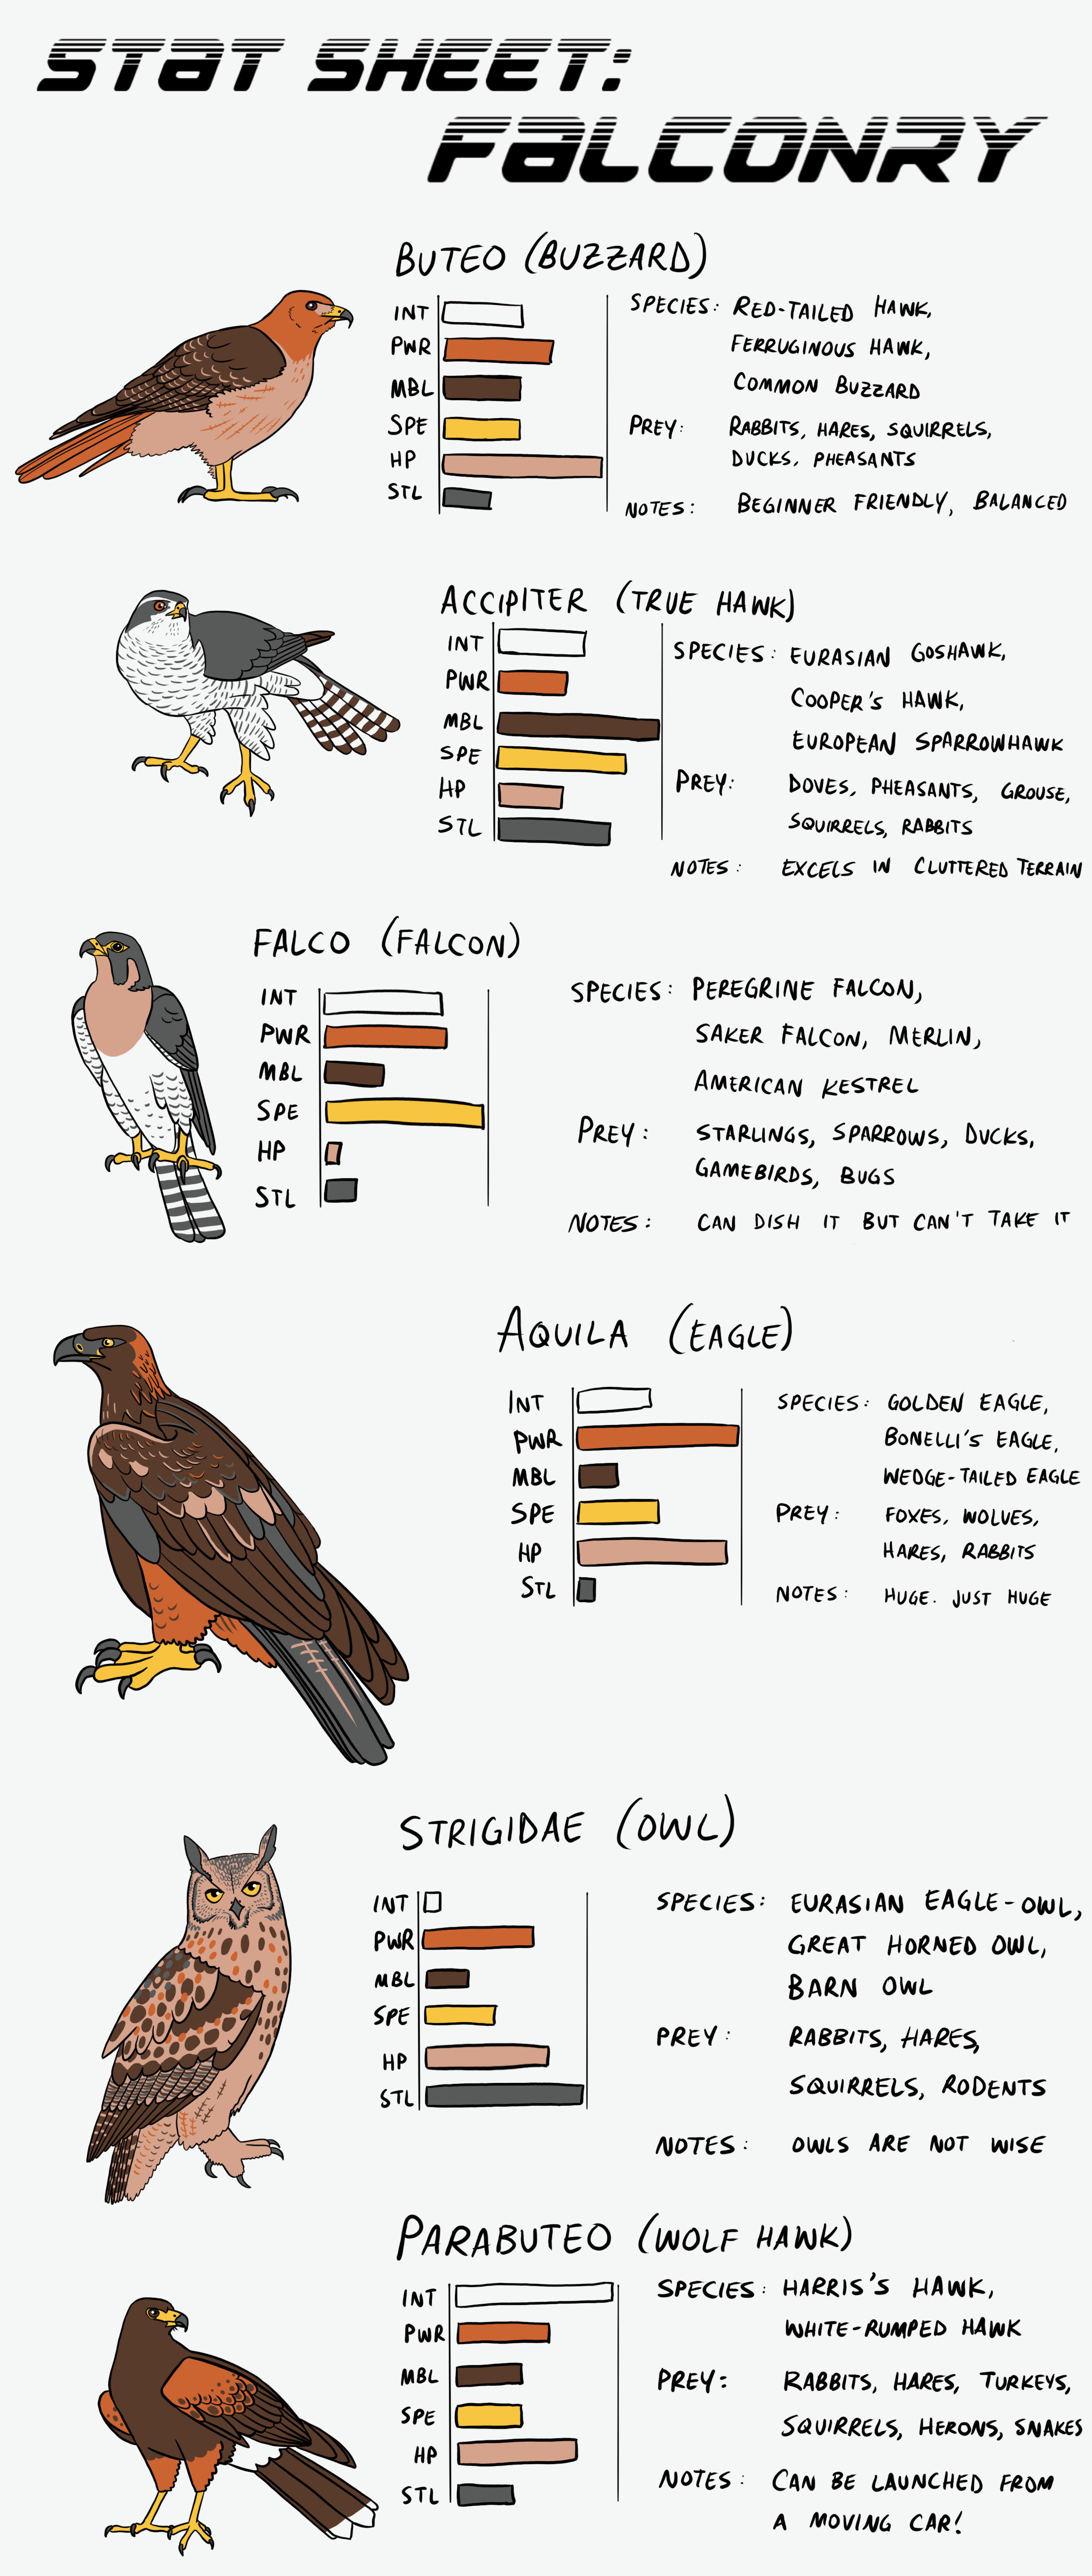 STAT SHEET:
FALCONRY
BUTEO (BUZZARD)
INT
PWR
MBL
SPE
HP
STL
SPECIES: RED-TAILED HAWK,
FERRUGINOUS HAWK,
COMMON BUZZARD
PREY: RABBITS, HARES, SQUIRRELS,
DUCKS, PHEASANTS
NOTES: BEGINNER FRIENDLY, BALANCED
ACCIPITER (TRUE HAWK)
INT
PWR
MBL
SPE
HP
STL
SPECIES: EURASIAN GOSHAWK,
COOPER'S HAWK,
EUROPEAN SPARROWHAWK
PREY: DOVES, PHEASANTS, GROUSE,
SQUIRRELS, RABBITS
NOTES: EXCELS IN CLUTTERED TERRAIN
FALCO (FALCON)
INT
PWR
MBL
SPE
HP
STL
SPECIES: PEREGRINE FALCON,
SAKER FALCON, MERLIN,
AMERICAN KESTREL
PREY: STARLINGS, SPARROWS, DUCKS,
GAMEBIRDS, BUGS
NOTES: CAN DISH IT BUT CAN'T TAKE IT
AQUILA (EAGLE)
INT
PWR
MBL
SPE
HP
STL
SPECIES: GOLDEN EAGLE,
BONELLI'S EAGLE,
WEDGE-TAILED EAGLE
PREY: FOXES, WOLVES,
HARES, RABBITS
NOTES: HUGE. JUST HUGE
STRIGIDAE (OWL)
INT
PWR
MBL
SPE
HP
STL
SPECIES: EURASIAN EAGLE-OWL,
GREAT HORNED OWL,
BARN OWL
PREY: RABBITS, HARES,
SQUIRRELS, RODENTS
NOTES: OWLS ARE NOT WISE
PARABUTEO (WOLF HAWK)
INT
PWR
MBL
SPE
HP
STL
SPECIES: HARRIS'S HAWK,
WHITE-RUMPED HAWK
PREY: RABBITS, HARES, TURKEYS,
SQUIRRELS, HERONS, SNAKES
NOTES: CAN BE LAUNCHED FROM
A MOVING CAR!